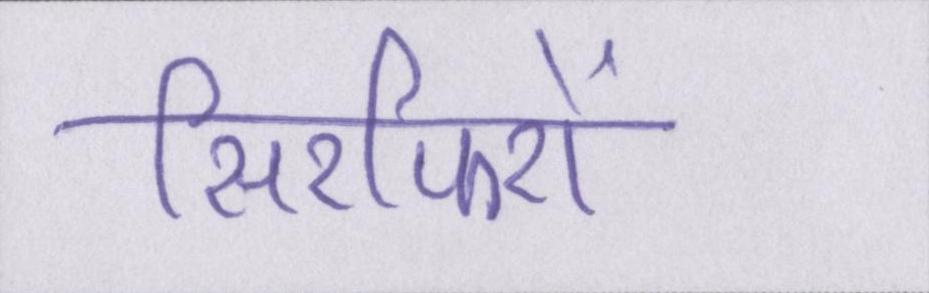 सिरफिरों